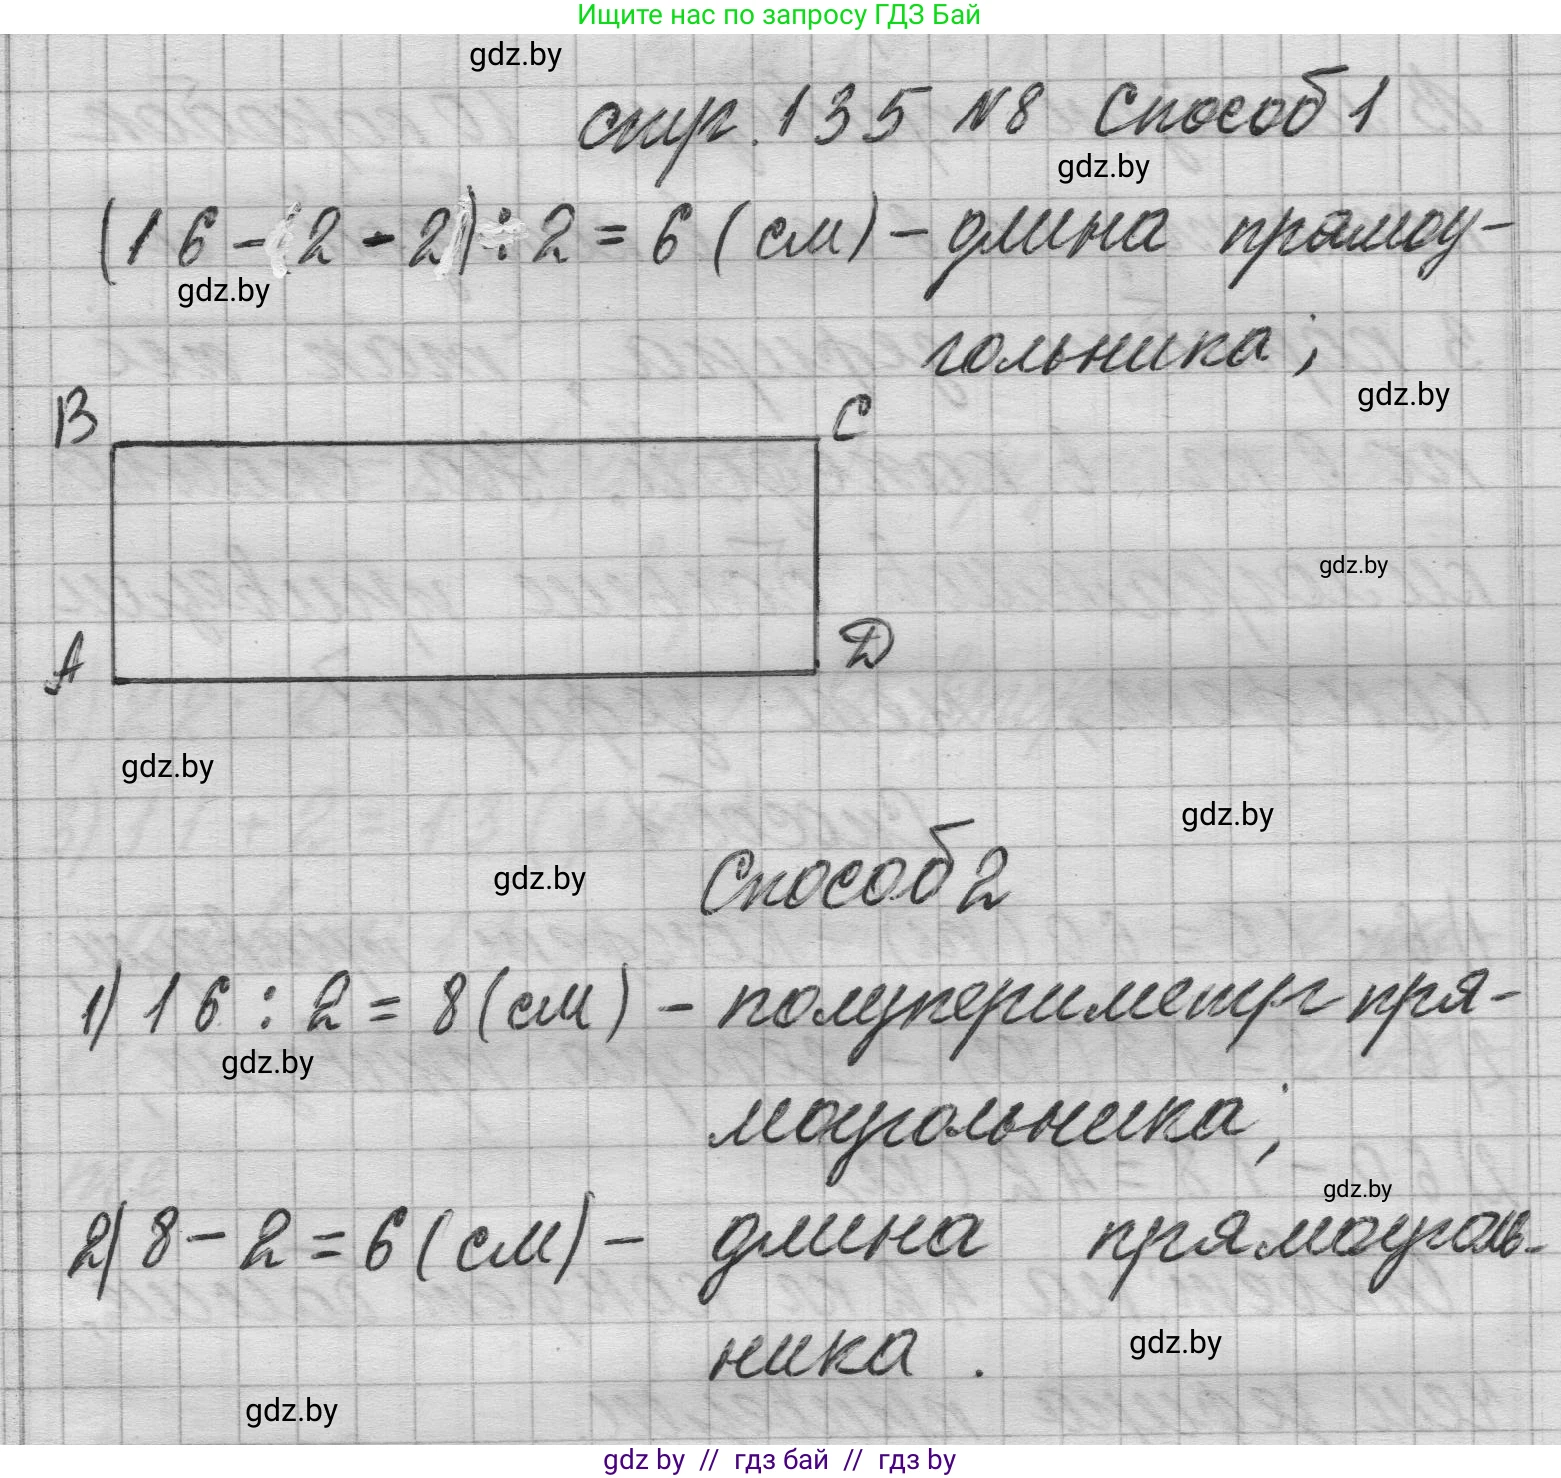 Ищите нас по запросу ГДЗ Бай
gdz.by
стр. 135 №8 Способ 1
gdz.by
(16-2-2):2=6(см)-длина прямоу-
gdz.by
гольника;
gdz.by
B C
gdz.by
A D
gdz.by
gdz.by
gdz.by
Способ 2
1) 16:2=8(см)-полупериметр пря-
gdz.by
моугольника;
gdz.by
2) 8-2=6(см)- длина прямоуголь-
ника.
gdz.by
gdz.by
gdz by // гдз бай // гдз by